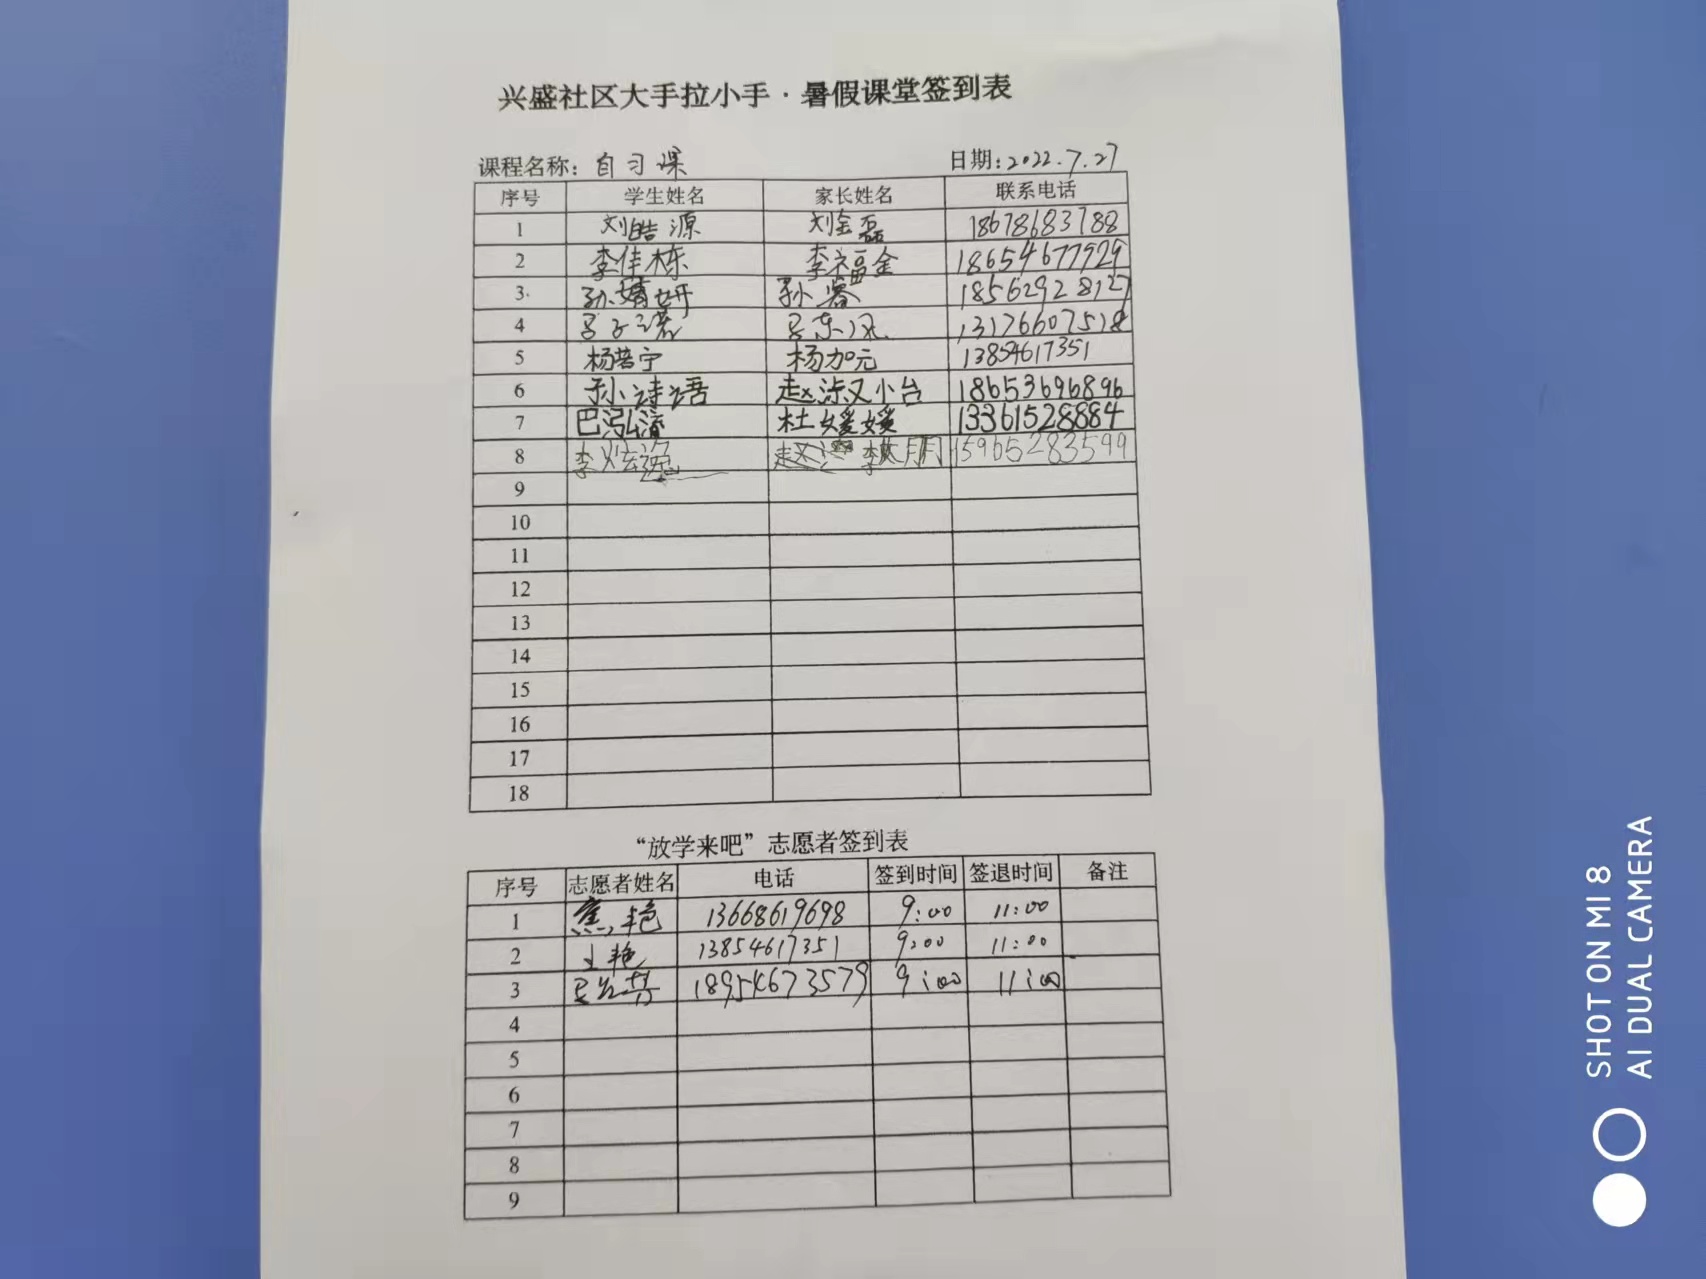 兴盛社区大手拉小手·暑假课堂签到表
课程名称：自习课 日期：2022.7.27
序号 学生姓名 家长姓名 联系电话
1 刘皓源 刘金磊 18678683788
2 李佳栋 李福金 18654677929
3 孙婧妍 孙睿 18562928127
4 吕子诺 吕东风 13176607518
5 杨若宁 杨加元 13854617351
6 孙诗语 赵 18653696896
7 巴泓 杜媛媛 13361528884
8 李 李 15965283599
9
10
11
12
13
14
15
16
17
18
“放学来吧”志愿者签到表
序号 志愿者姓名 电话 签到时间 签退时间 备注
1 焦艳 13668619698 9:00 11:00
2 王艳 13854617351 9:00 11:00
3 18954673579 9:00 11:00
4
5
6
7
8
9
SHOT ON MI 8
AI DUAL CAMERA